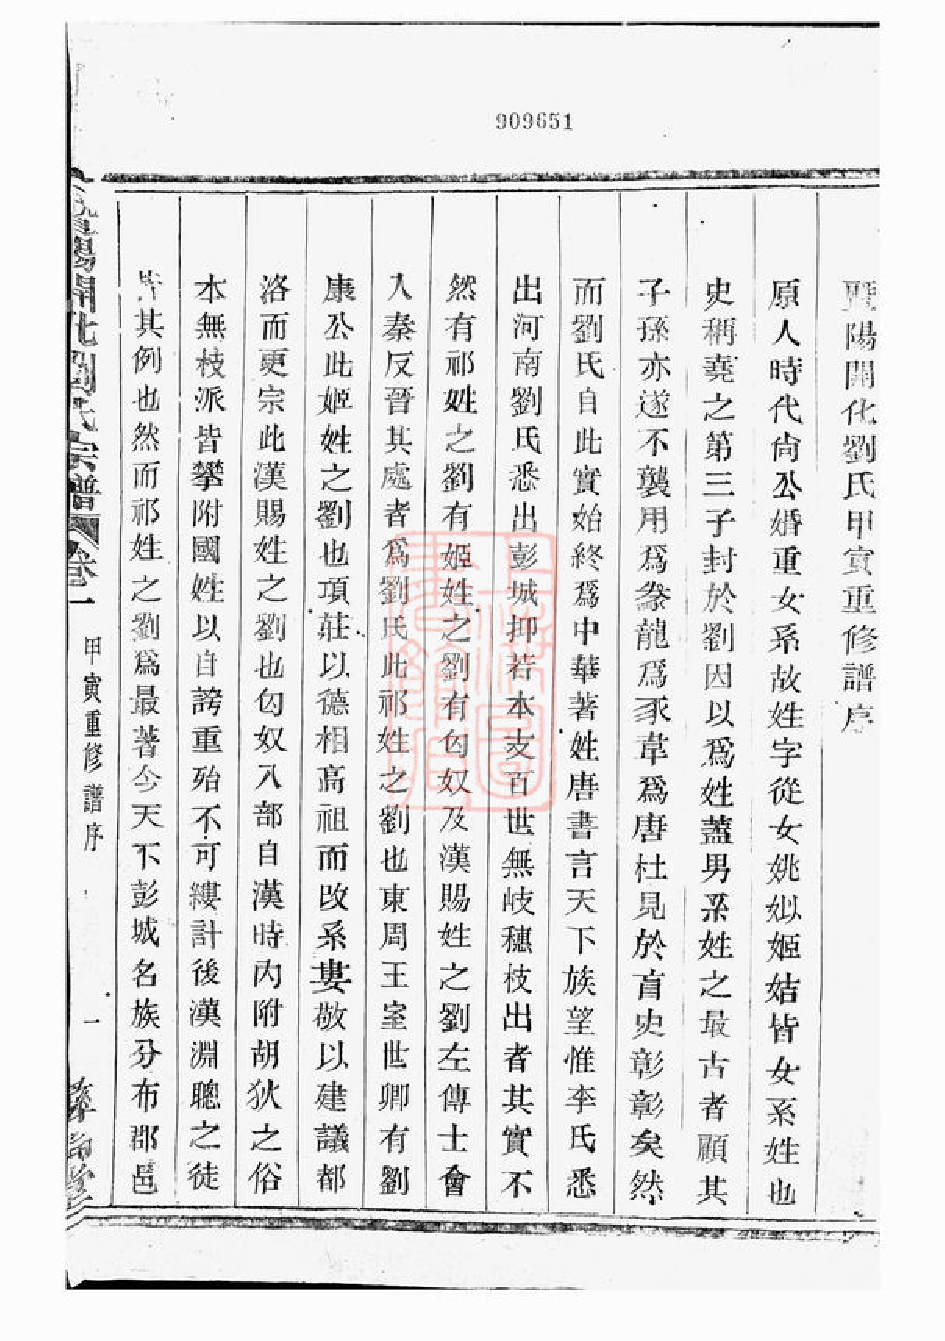 909651
暨陽開化劉氏甲寅重修譜序
原人時代尙公婚重女系故姓字從女姚姒姬姞皆女系姓也
史稱堯之第三子封於劉因以爲姓蓋男系姓之最古者顧其
子孫亦遂不襲用爲豢龍爲豕韋爲唐杜見於盲史彰彰矣然
而劉氏自此實始終爲中華著姓唐書言天下族望惟李氏悉
出河南劉氏悉出彭城抑若本支百世無岐穗枝出者其實不
然有祁姓之劉有姬姓之劉有匈奴及漢賜姓之劉左傳士會
入秦反晉其處者爲劉氏此祁姓之劉也東周王室世卿有劉
康公此姬姓之劉也項莊以德相高祖而改系婁敬以建議都
洛而更宗此漢賜姓之劉也匈奴入部自漢時內附胡狄之俗
本無枝派皆攀附國姓以自誇重殆不可縷計後漢淵聰之徒
皆其例也然而祁姓之劉爲最著今天下彭城名族分布郡邑
暨陽開化劉氏宗譜 卷一
甲寅重修譜序
一